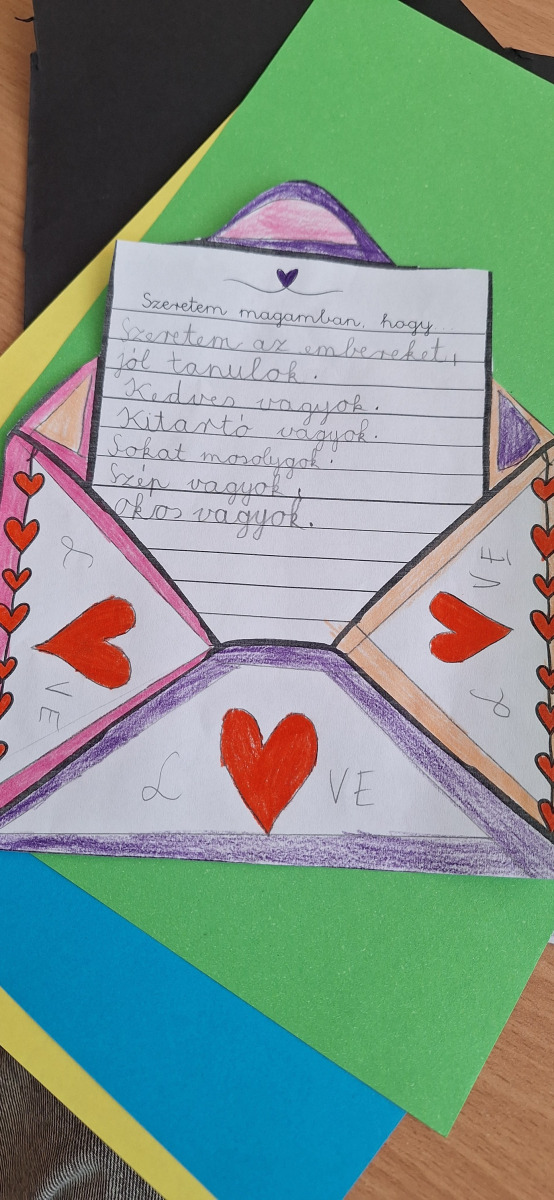 Szeretem magamban, hogy...
Szeretem az embereket,
jól tanulok.
Kedves vagyok.
Kitartó vagyok.
Sokat mosolygok.
Szép vagyok,
okos vagyok.
L VE
L VE
L VE